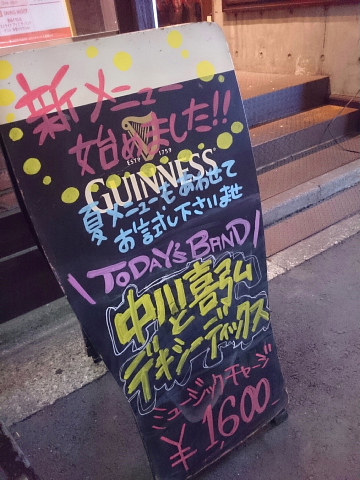 新メニュー
始めました!!
ESTD 1759
GUINNESS
夏メニューもあわせて
お試し下さいませ
\TODAY'S BAND/
中川喜弘
と
デキシーディックス
ミュージックチャージ
¥1600